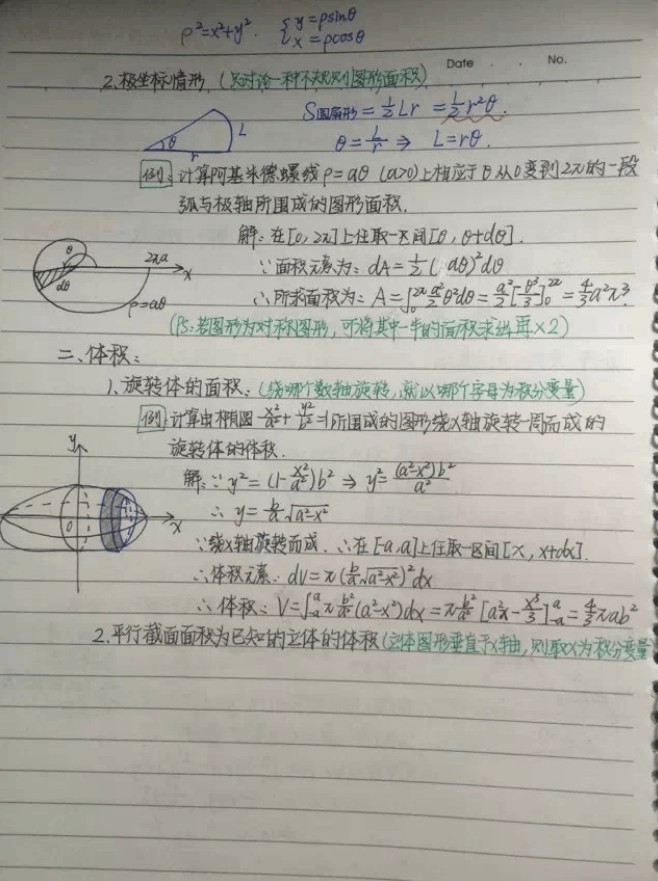 ρ²=x²+y². { y=ρsinθ
x=ρcosθ
Date . . No.
2.极坐标情形.(只讨论一种不规则图形面积)
S圆扇形=½Lr=½r²θ.
θ=L/r ⇒ L=rθ.
θ r L
例:计算阿基米德螺线ρ=aθ (a>0)上相应于θ从0变到2π的一段
弧与极轴所围成的图形面积.
解:在[0,2π]上任取一区间[θ,θ+dθ].
θ dθ 2πa x ρ=aθ
∵面积元素为:dA=½(aθ)²dθ
∴所求面积为:A=∫₀^2π a²/2 θ²dθ=a²/2[θ³/3]₀^2π=4/3a²π³.
(PS:若图形为对称图形,可将其中一半的面积求出再×2)
二、体积:
1.旋转体的面积:(绕哪个数轴旋转,就以哪个字母为积分变量)
例:计算由椭圆x²/a²+y²/b²=1所围成的图形绕x轴旋转一周而成的
旋转体的体积.
y 0 x
解:∵y²=(1-x²/a²)b² ⇒ y²=(a²-x²)b²/a²
∴y=b/a√a²-x²
∵绕x轴旋转而成.∴在[-a,a]上任取一区间[x,x+dx].
∴体积元素:dV=π(b/a√a²-x²)²dx
∴体积:V=∫₋ₐ^a π b²/a²(a²-x²)dx=π b²/a²[a²x-x³/3]₋ₐ^a=4/3πab²
2.平行截面面积为已知的立体的体积(立体图形垂直于x轴,则取x为积分变量